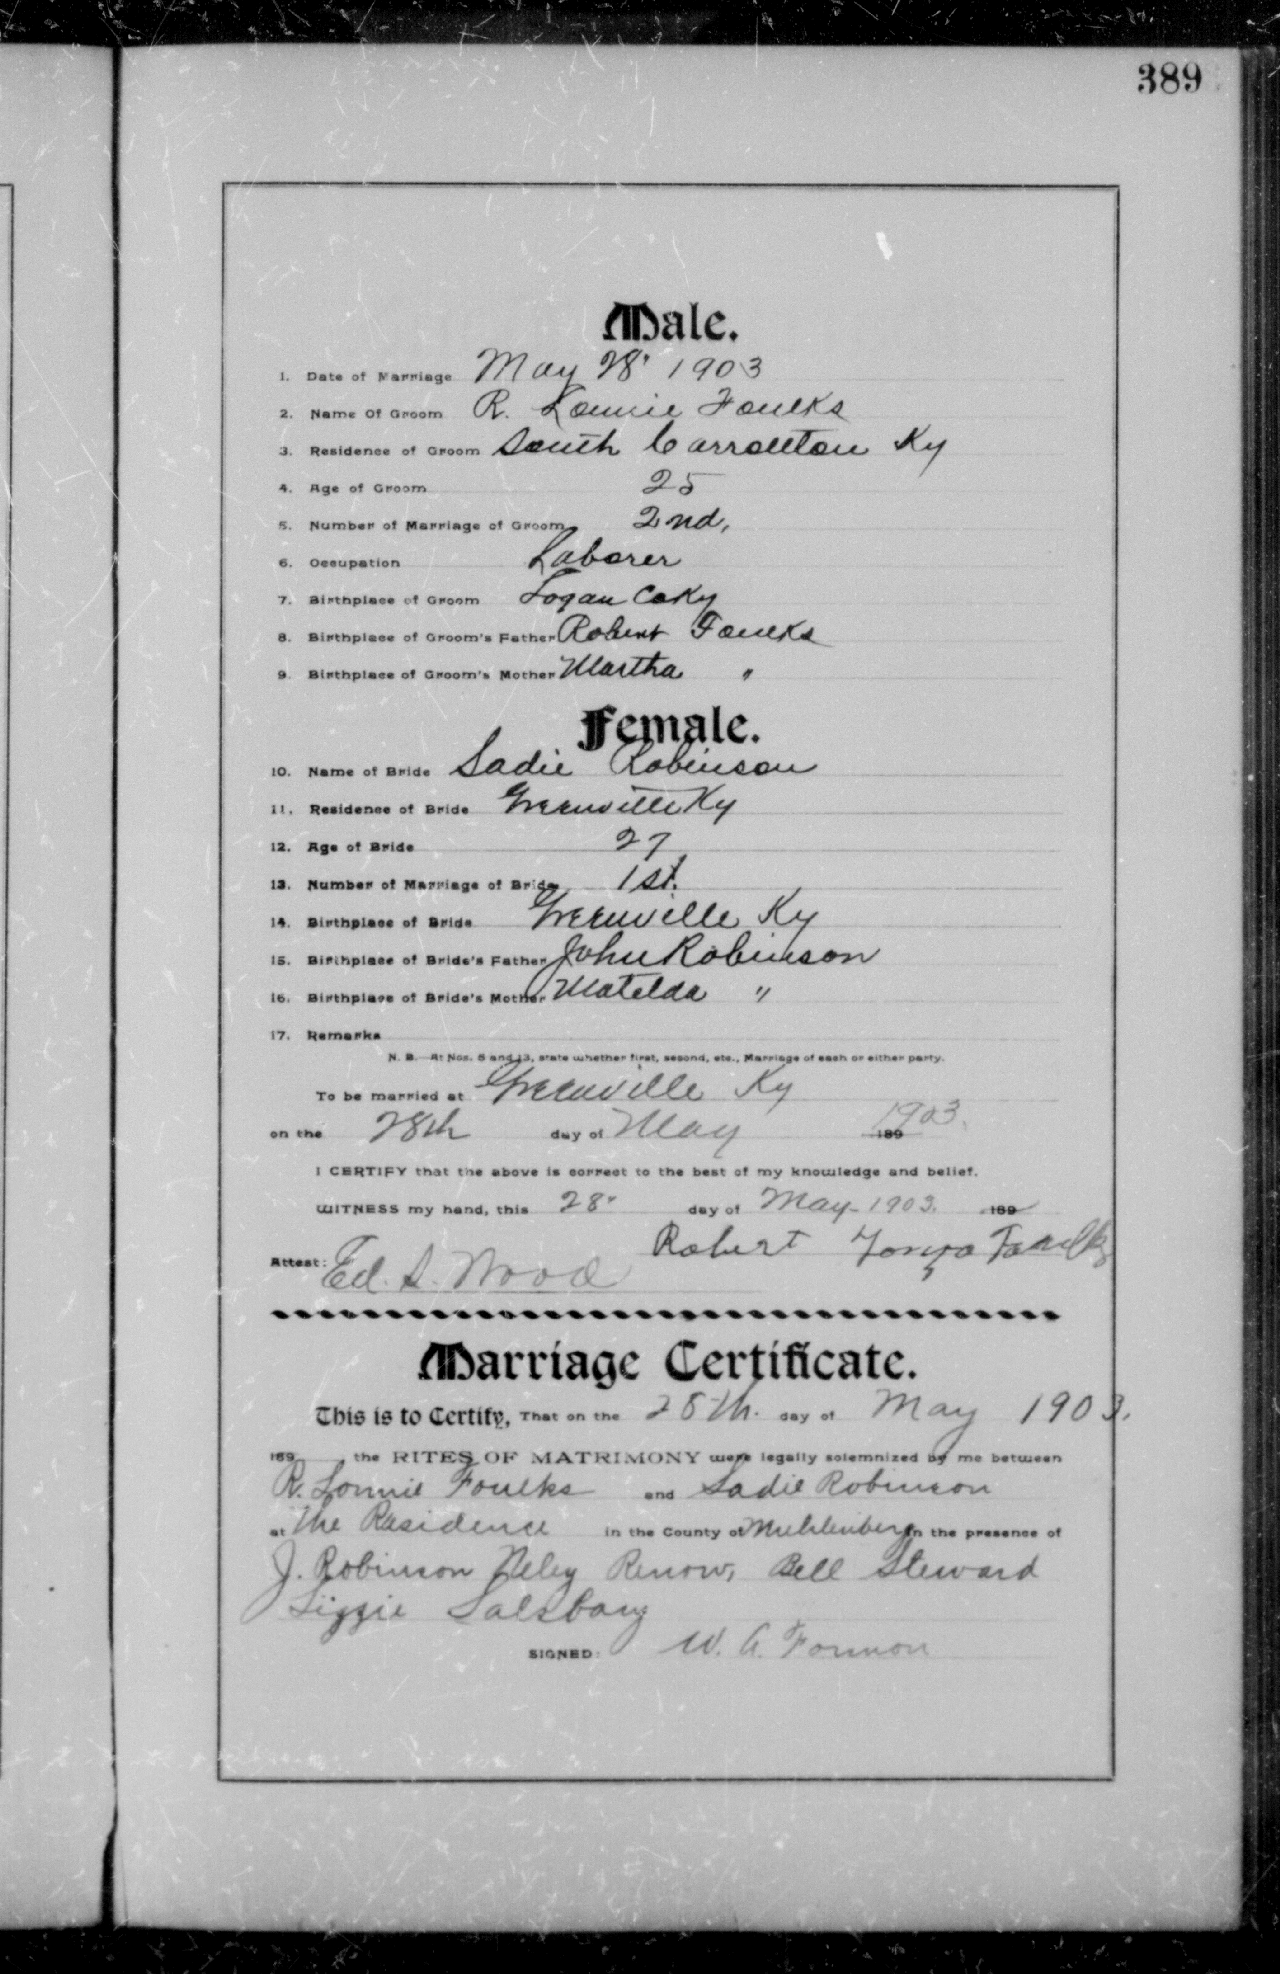 389
Male.
1. Date of Marriage May 28" 1903
2. Name Of Groom R. Lonnie Foulks
3. Residence of Groom South Carrollton Ky
4. Age of Groom 25
5. Number of Marriage of Groom 2nd,
6. Occupation Laborer
7. Birthplace of Groom Logan Co Ky
8. Birthplace of Groom's Father Robert Foulks
9. Birthplace of Groom's Mother Martha "
Female.
10. Name of Bride Sadie Robinson
11. Residence of Bride Greenville Ky
12. Age of Bride 27
13. Number of Marriage of Bride 1st.
14. Birthplace of Bride Greenville Ky
15. Birthplace of Bride's Father John Robinson
16. Birthplace of Bride's Mother Matelda "
17. Remarks
N. B. At Nos. 5 and 13, state whether first, second, etc., Marriage of each or either party.
To be married at Greenville Ky
on the 28th day of May 189 1903.
I CERTIFY that the above is correct to the best of my knowledge and belief.
WITNESS my hand, this 28" day of May 1903. 189
Robert Faulks
Attest: Ed. S. Wood
Marriage Certificate.
This is to Certify, That on the 28th. day of May 1903.
189 the RITES OF MATRIMONY were legally solemnized by me between
R. Lonnie Foulks and Sadie Robinson
at the Residence in the County of Muhlenberg in the presence of
J. Robinson Renow, Bell Steward
Lizzie
SIGNED: W. A.